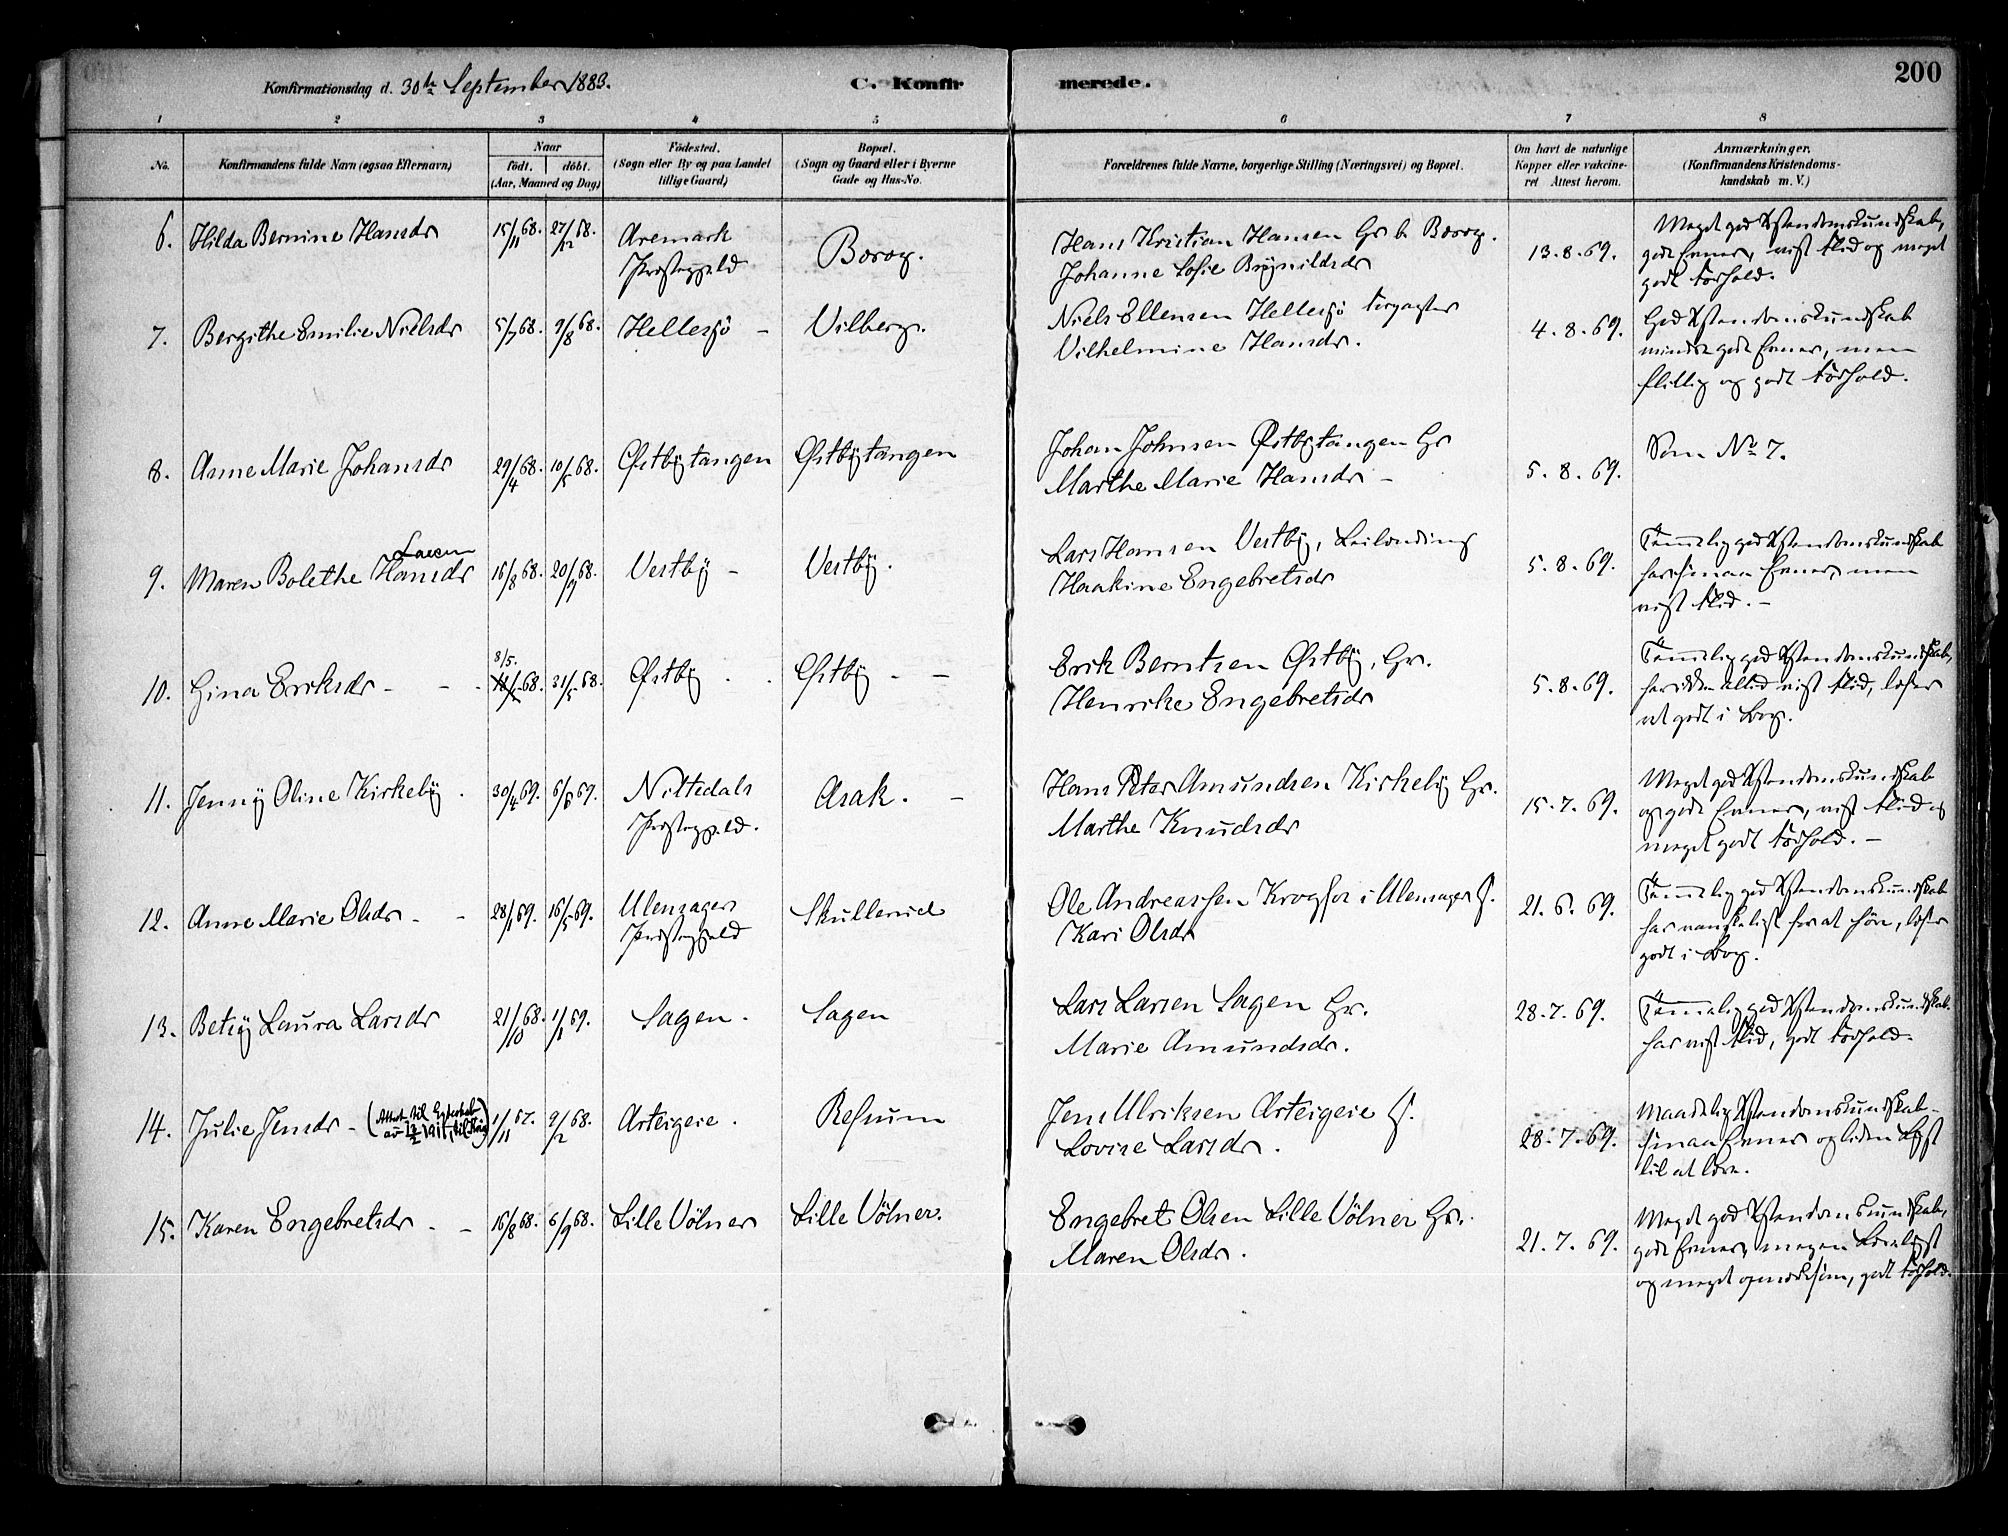 Konfirmationsdag d. 30te September 1883.
C. Konfirmerede.
200
1 2 3 4 5 6 7 8
No.
Konfirmandens fulde Navn (ogsaa Efternavn)
Naar
født. døbt.
(Aar, Maaned og Dag)
Fødested.
(Sogn eller By og paa Landet
tillige Gaard)
Bopæl.
(Sogn og Gaard eller i Byerne
Gade og Hus-No.
Forældrenes fulde Navne, borgerlige Stilling (Næringsvei) og Bopæl.
Om havt de naturlige
Kopper eller vakcine-
ret Attest herom.
Anmærkninger.
(Konfirmandens Kristendoms-
kundskab m. V.)
6. Hilda Bernine Hansdr 15/11 68. 27/12 68. Aremark
Præstegjeld
Borog.
Hans Kristian Hansen Gr b. Borog.
Johanne Sofie Brynildsdr
13.8.69.
Meget god Xstendomskundskab,
gode Evner, vist Flid og meget
godt Forhold.
7. Bergithe Emilie Nielsdr 5/7 68. 9/8 68. Hellesjö – Vilberg.
Niels Ellensen Hellesjö Forpagter
Vilhelmine Hansdr.
4.8.69.
God Xstendomskundskab
mindre gode Evner, men
flittig og godt Forhold.
8. Anne Marie Johansdr 29/4 68. 10/5 68. Østbytangen Østbytangen
Johan Johnsen Østbytangen Gr
Marthe Marie Hansdr –
5.8.69.
Som No 7.
9. Maren Bolethe Hansdr 16/8 68. 20/9 68. Vestby – Vestby.
Lars Hansen Vestby, Leilending
Haakine Engebretsdr
5.8.69.
Temmelig god Xstendomskundskab
har smaa Evner, men
vist Flid. –
10. Gina Eriksdr – – 8/5. 68. 31/5 68. Østby . . Østby – –
Erik Berntsen Østby, Gr.
Henrike Engebretsdr
5.8.69.
Temmelig god Xstendomskundskab,
har ikke altid vist Flid, læser
et godt i Bog.
11. Jenny Oline Kirkeby . 30/4 69. 6/6 69. Nittedals
Præstegjeld.
Asak. –
Hans Peter Amundsen Kirkeby Gr.
Marthe Knudsdr
15.7.69.
Meget god Xstendomskundskab
og gode Evner, vist Flid og
meget godt Forhold. –
12. Anne Marie Olsdr – – 28/1 69. 16/5 69. Ulensagers
Præstegjeld
Skullerud
Ole Andreassen Krogfos i Ulensager
Kari Olsdr
21.6.69.
Temmelig god Xstendomskundskab
har vanskeligt for at höre, læser
godt i Bog.
13. Betsy Laura Larsdr 21/10 68. 1/1 69. Sagen. Sagen
Lars Larsen Sagen Gr.
Marie Amundsdr.
28.7.69.
Temmelig god Xstendomskundskab.
har vist Flid, godt Forhold.
14. Julie Jensdr – (Attest til Egteskab
1/11 67. 9/2 68. Asteigeie. Refsum
Jens Ulriksen Asteigeie
Lovise Larsdr.
28.7.69.
Maadelig Xstendomskundskab –
smaa Evner og liden Lyst
til at lære.
15. Karen Engebretsdr – – 16/8 68. 6/9 68. Lille Völner Lille Völner.
Engebret Olsen Lille Völner Gr.
Maren Olsdr.
21.7.69.
Meget god Xstendomskundskab,
gode Evner, megen Lærelyst
og meget opmærksom, godt Forhold.